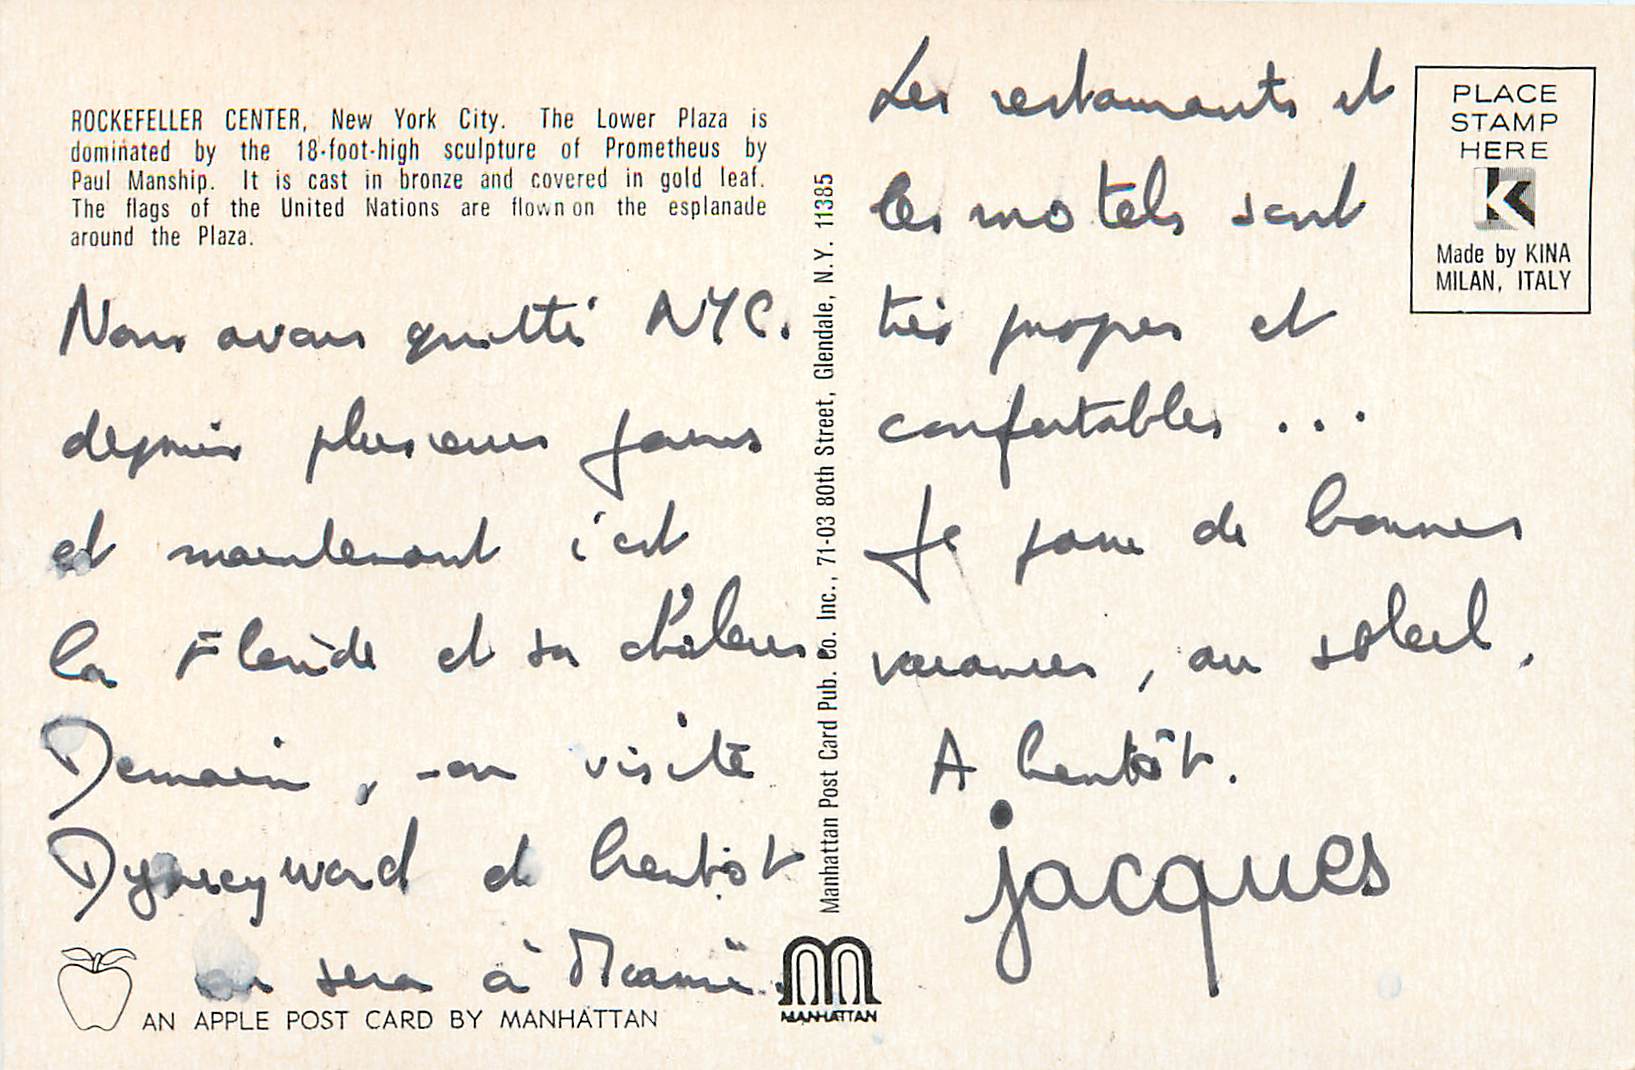 ROCKEFELLER CENTER, New York City. The Lower Plaza is
dominated by the 18-foot-high sculpture of Prometheus by
Paul Manship. It is cast in bronze and covered in gold leaf.
The flags of the United Nations are flown on the esplanade
around the Plaza.
Nous avons quitté NYC.
depuis plusieurs jours
et maintenant c'est
la Floride et sa chaleur.
Demain, on visite
Dysneyword et bientôt
on sera à Miami.
AN APPLE POST CARD BY MANHATTAN
Manhattan Post Card Pub. Co. Inc., 71-03 80th Street, Glendale, N.Y. 11385
MANHATTAN
Les restaurants et
les motels sont
très propres et
confortables ...
Je passe de bonnes
vacances, au soleil.
A bientôt.
jacques
PLACE
STAMP
HERE
K
Made by KINA
MILAN, ITALY